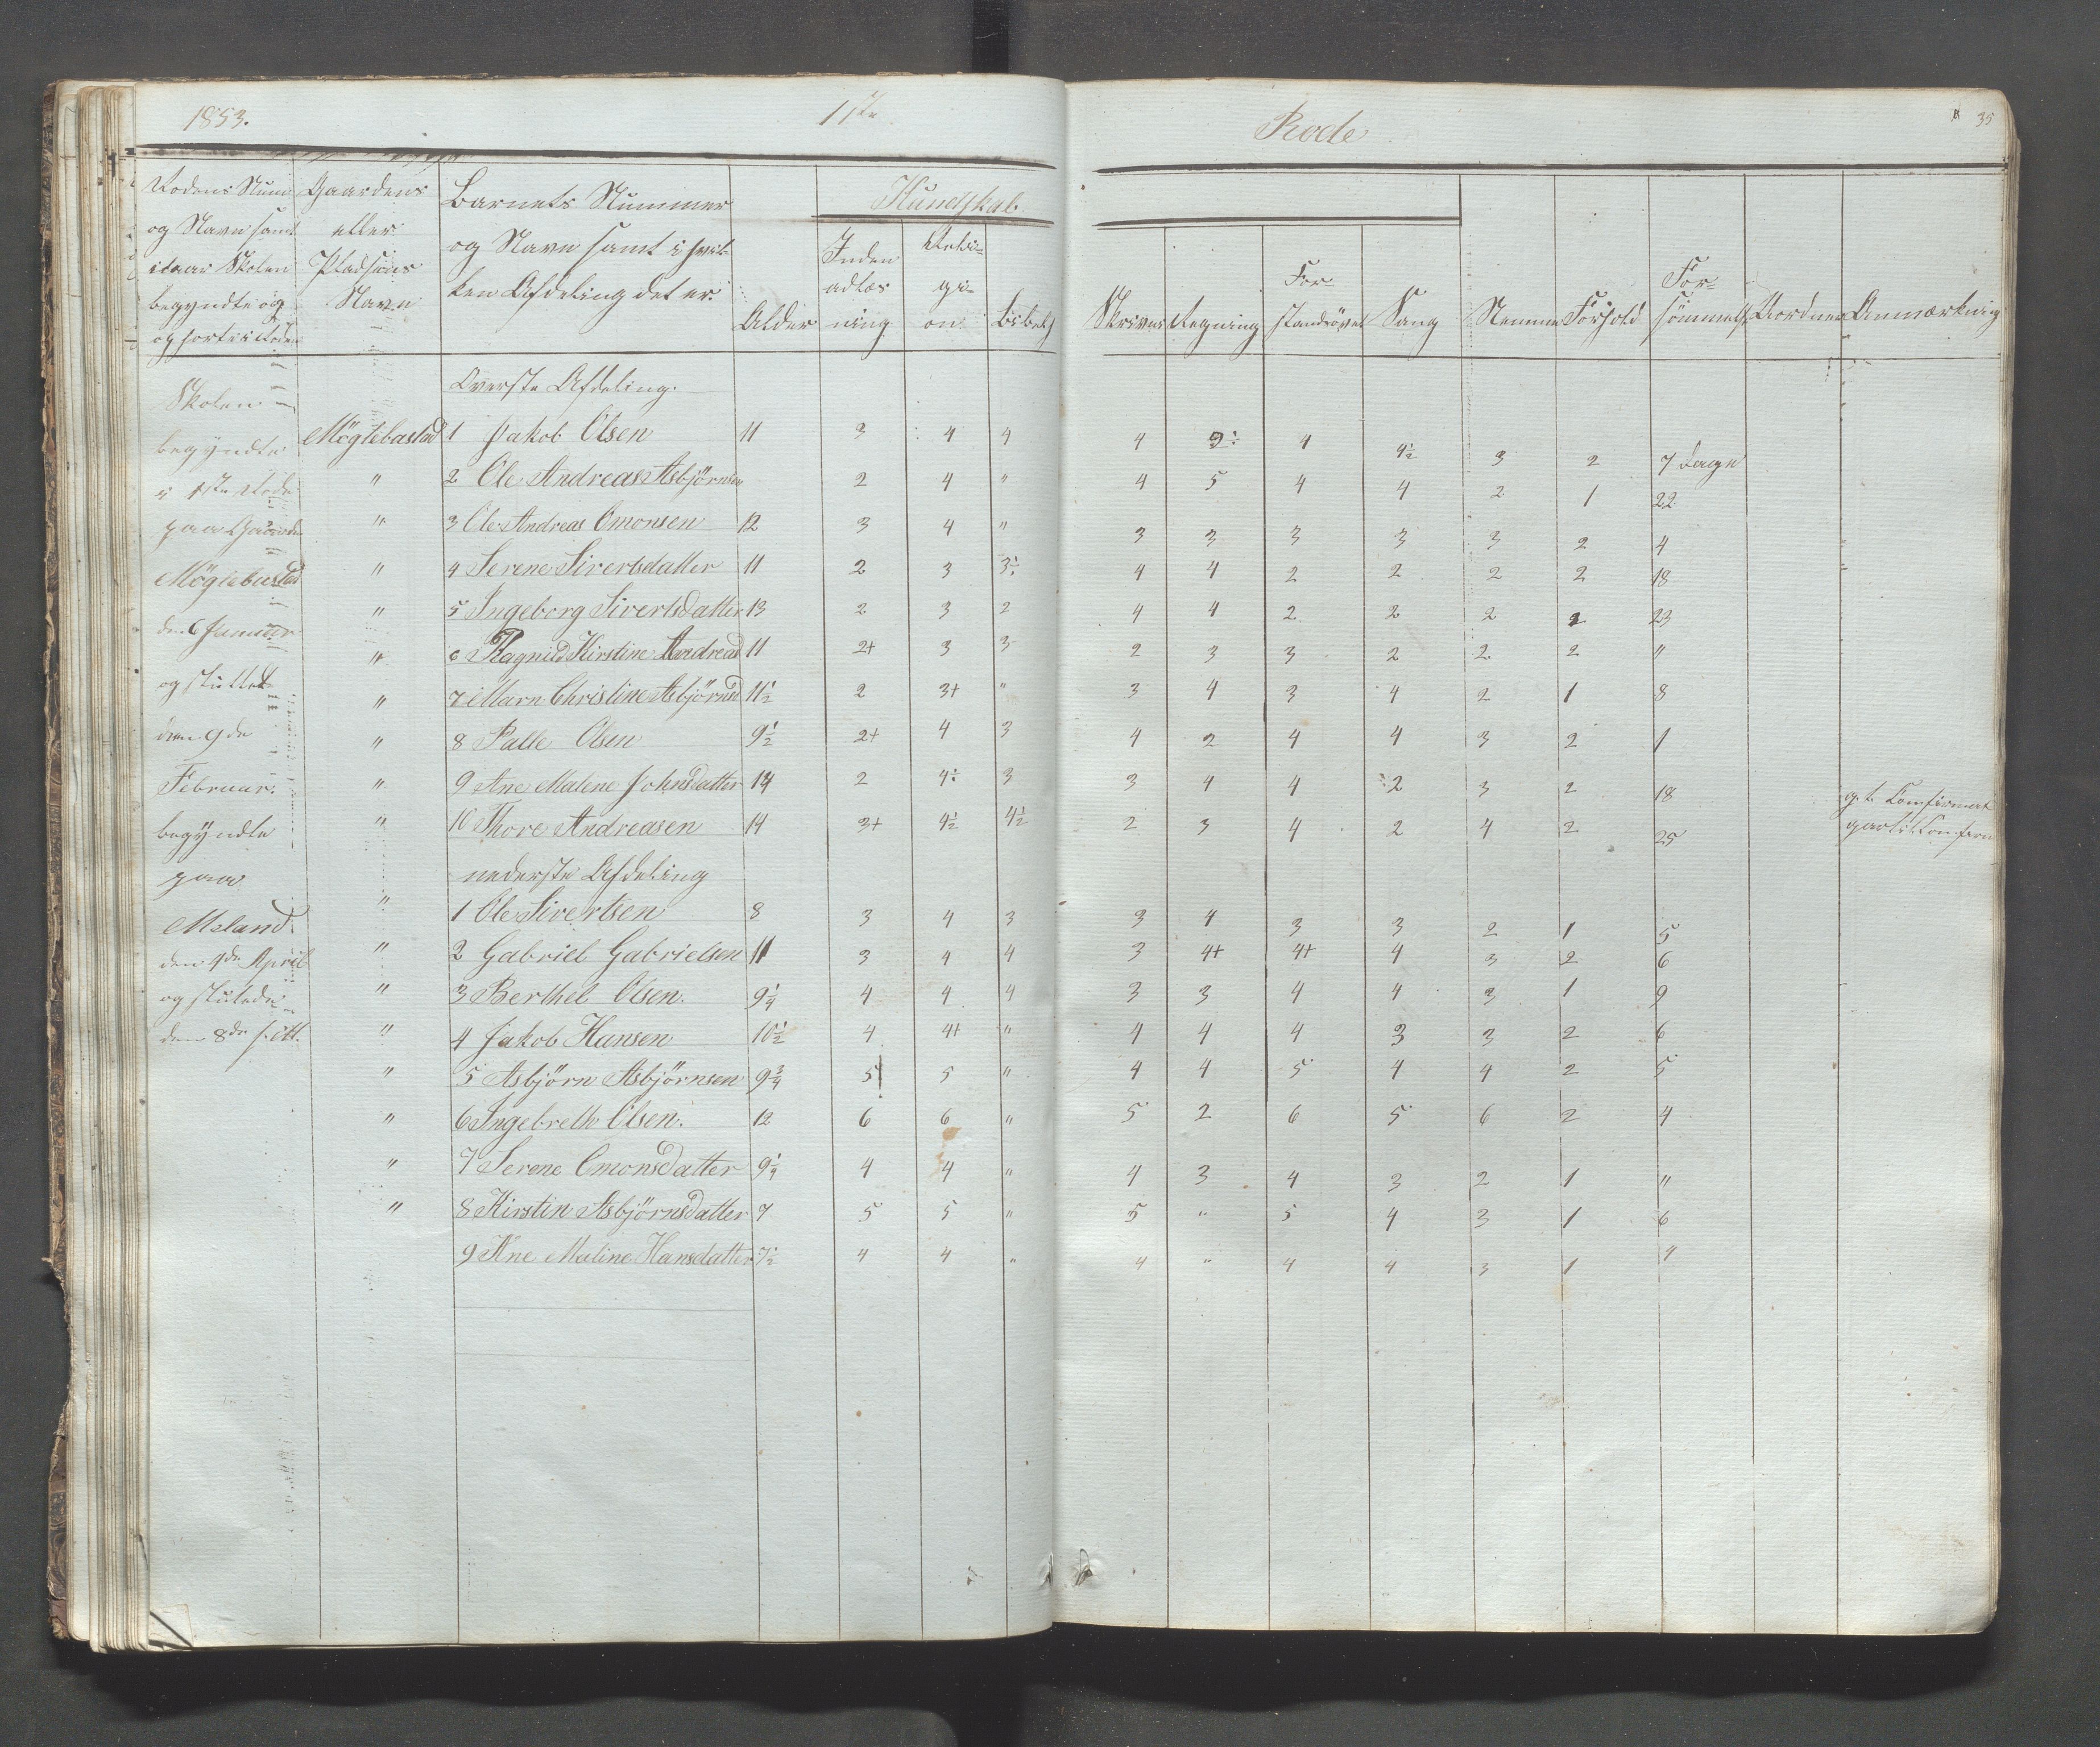 1853.
11te
Rode
35
Rodens Num
og Navn samt
naar Skolen
begyndte og
Gaardens
eller
Pladsens
Navn
Barnets Nummer
og Navn samt i hvil-
ken Afdeling det er.
Alder
Kundskab
Inden
adlæs
ning
Religi-
on
Bibels
Skrivn
Regning
For-
standsøvel
Sang
Nemme
Forhold
For-
sømmels
Anmærkning
Skolen
begyndte
i 1ste Rode
paa Gaarden
Möglebustad
den 6 Januar
og sluttet
den 9de
Februar.
begyndte
paa
Meland
den 1de April
og slutede
den 8de
Overste Afdeling.
Möglebustad 1 Jakob Olsen 11 3 4 4 4 3 4 4½ 3 2 7 Dage
" 2 Ole Andreas Asbjörnsen 2 4 " 4 5 4 4 2 1 22
" 3 Ole Andreas Omonsen 12 3 4 " 3 3 3 3 3 2 4
" 4 Serene Sivertsdatter 11 2 3 3÷ 4 4 2 2 2 2 18
" 5 Ingeborg Sivertsdatter 13 2 3 2 4 4 2 2 2 2 23
" 6 Ragnild Kirstine Andreasd 11 2+ 3 3 2 3 3 2 2 2 "
" 7 Marn Christine Asbjörnsd 11½ 2 3+ " 3 4 3 4 2 1 8
" 8 Palle Olsen 9½ 2+ 4 3 4 2 4 4 3 2 1
" 9 Ane Malene Johnsdatter 14 2 4÷ 3 3 4 4 2 3 2 18 g. t. Confirmat
" 10 Thore Andreasen 14 3+ 4½ 4½ 2 3 4 2 4 2 25
nederste Afdeling
" 1 Ole Sivertsen 8 3 4 3 3 4 3 3 2 1 5
" 2 Gabriel Gabrielsen 11 3 4 4 3 4+ 4+ 4 3 2 6
" 3 Berthel Olsen. 9¼ 4 4 4 3 3 4 4 3 1 9
" 4 Jakob Hansen 10½ 4 4+ " 4 4 4 3 3 2 6
" 5 Asbjörn Asbjörnsen 9¾ 5 5 " 4 4 5 4 4 2 5
" 6 Ingebreth Olsen. 12 6 6 " 5 2 6 5 6 2 4
" 7 Serene Omonsdatter 9¼ 4 4 " 4 3 4 3 2 1 "
" 8 Kirstin Asbjörnsdatter 7 5 5 " 5 " 5 4 3 1 6
9 Ane Maline Hansdatter 7½ 4 4 " 4 " 4 4 3 1 4